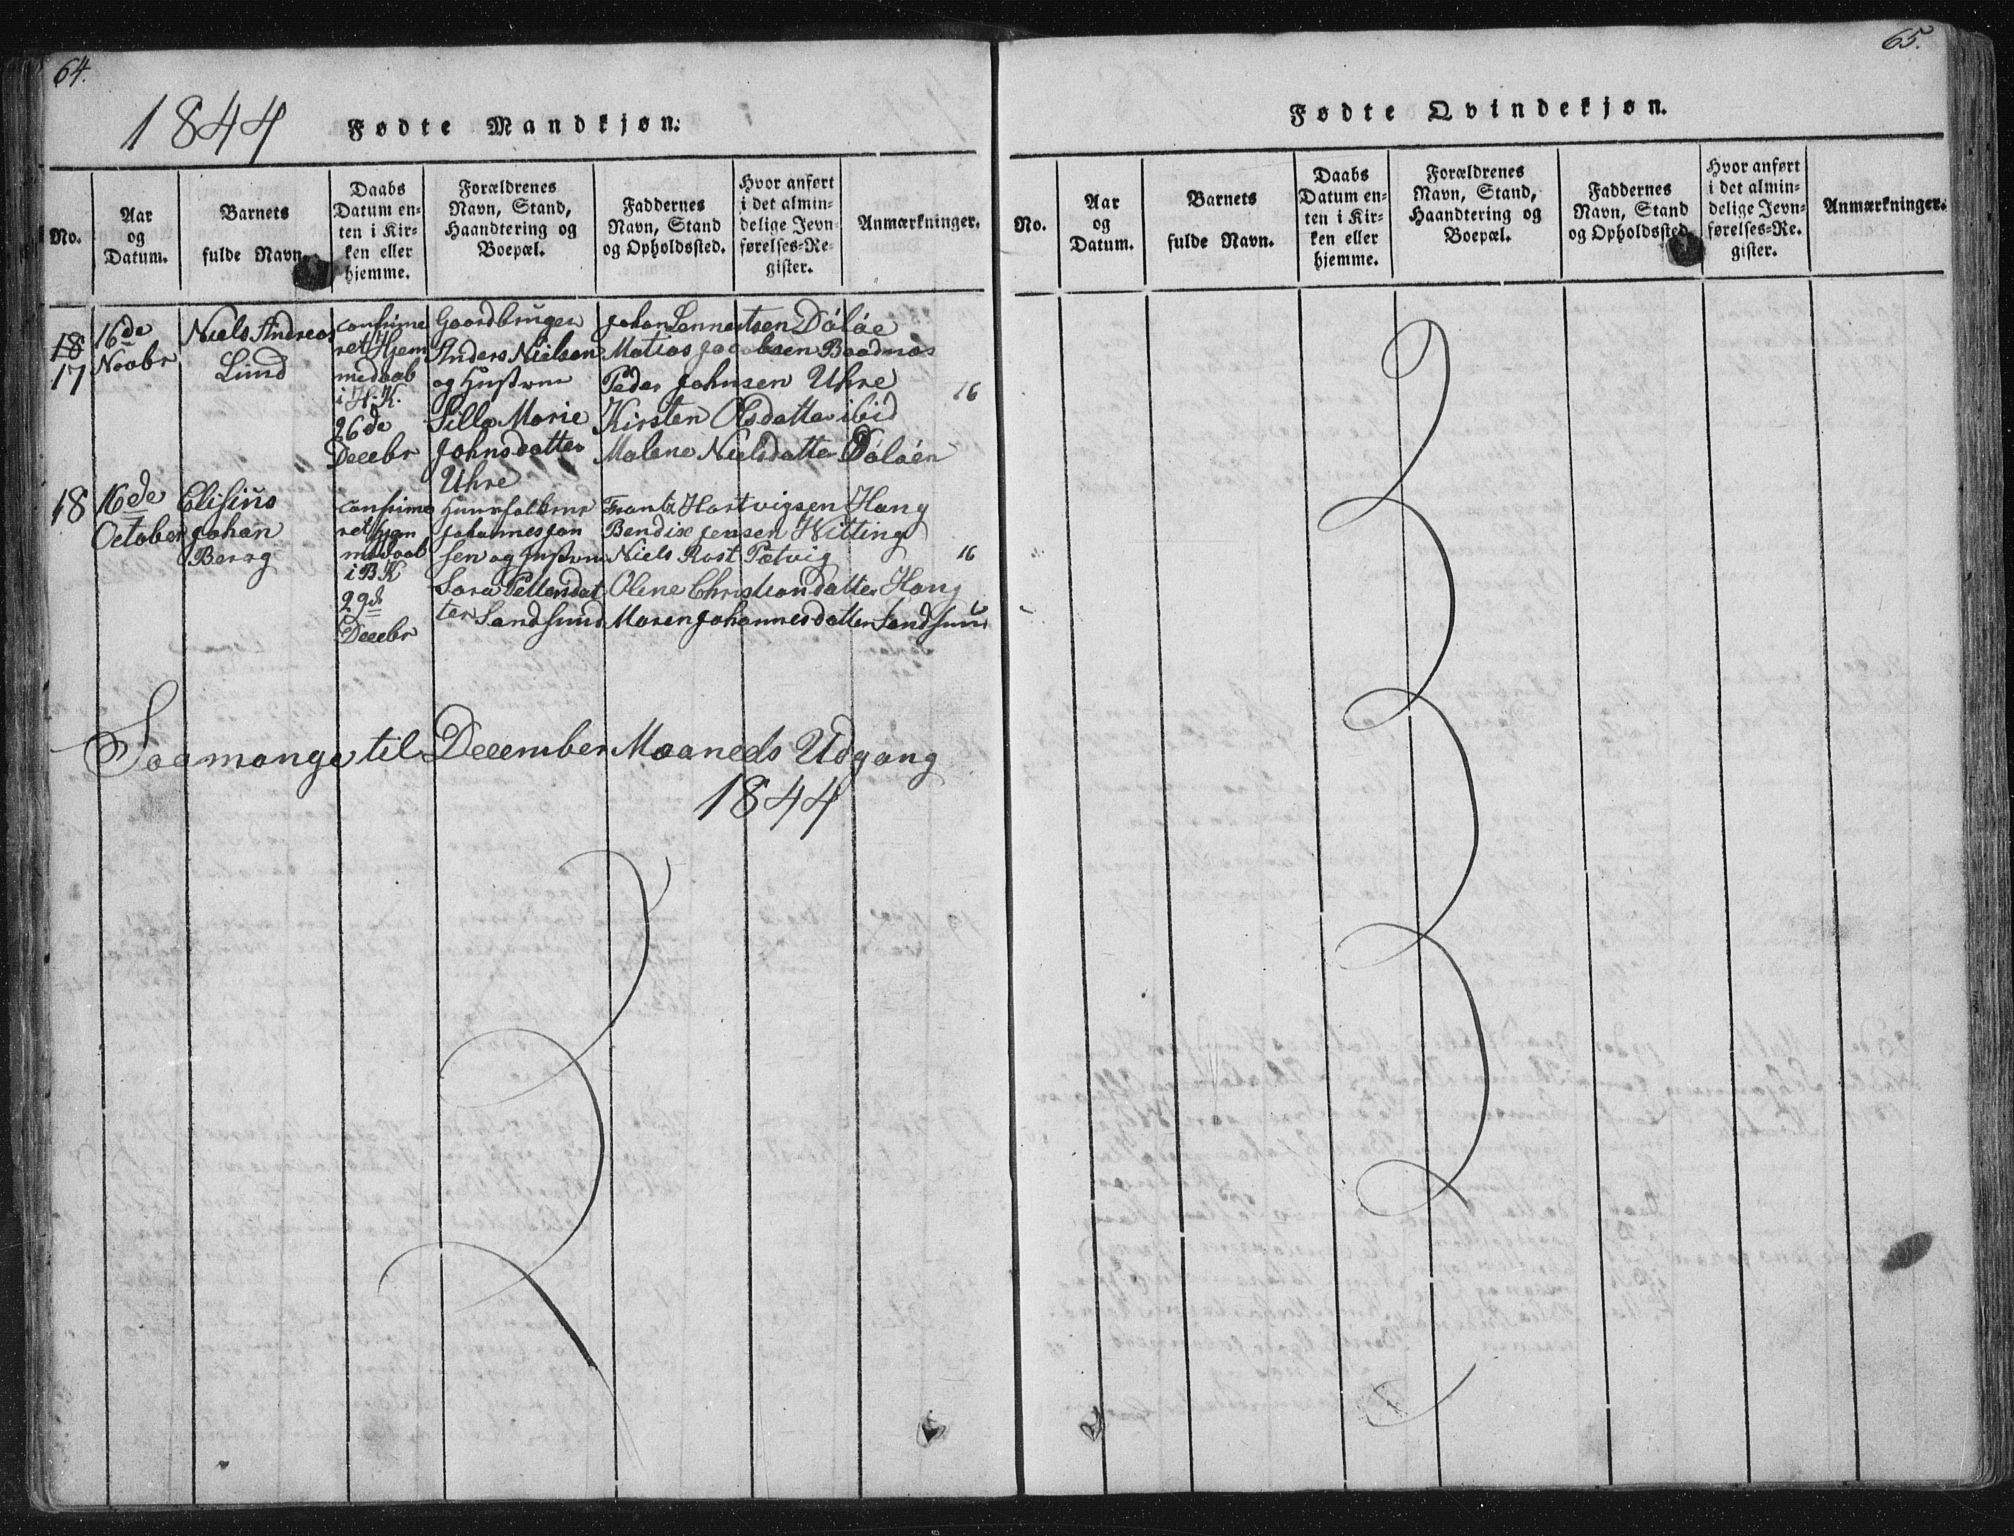 64.
1844 Fødte Mandkjøn.
No.
Aar
og
Datum.
Barnets
fulde Navn.
Daabs
Datum en-
ten i Kir-
ken eller
hjemme.
Forældrenes
Navn, Stand,
Haandtering og
Boepæl.
Faddernes
Navn, Stand
og Opholdssted.
Hvor anført
i det almin-
delige Jevn-
førelses-Re-
gister.
Anmærkninger.
18
17
16de
Novbr
Niels Andreas
Lund
confirme
ret Hjem
medaab
i H. K.
26de
Decebr
Gaardbruger
Anders Nielsen
og Hustrue
Silla Marie
Johnsdatter
Uhre
Johan Lennertsen Døløe
Matias Jacobsen Baadnæs
Peder Johnsen Uhre
Kirsten Olsdatter ibid
Malene Nielsdatter Døløen
16
18
16de
October
Elisius
Johan
Berg
confirme
ret Hjem
medaab
i B K
29de
Decebr
Huusfolkene
Johannes Jon
sen og Hustrue
Sara Pettersdat
ter Sandsund
Frantz Hartvigsen Hang
Bendix Jensen Hitting
Niels Rost Petvig
Olene Christiandatter Hang
Maren Johannesdatter Sandsund
16
Saamange til December Maaneds Udgang
1844
65.
Fødte Qvindekjøn.
No.
Aar
og
Datum.
Barnets
fulde Navn.
Daabs
Datum en-
ten i Kir-
ken eller
hjemme.
Forældrenes
Navn, Stand,
Haandtering og
Boepæl.
Faddernes
Navn, Stand
og Opholdssted.
Hvor anført
i det almin-
delige Jevn-
førelses-Re-
gister.
Anmærkninger.